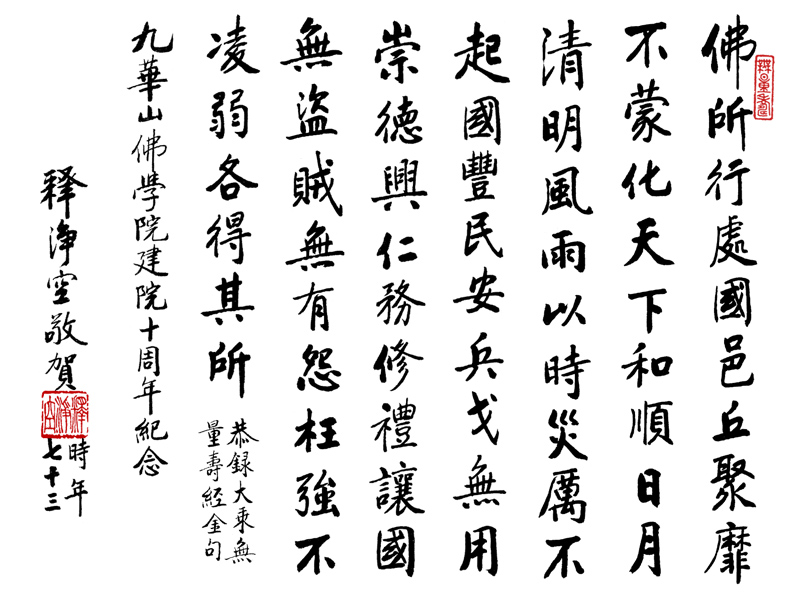 佛所行處國邑丘聚靡
不蒙化天下和順日月
清明風雨以時災厲不
起國豐民安兵戈無用
崇德興仁務修禮讓國
無盜賊無有怨枉強不
凌弱各得其所
恭録大乘無
量壽經金句
九華山佛學院建院十周年紀念
釋淨空敬賀
時年
七十三